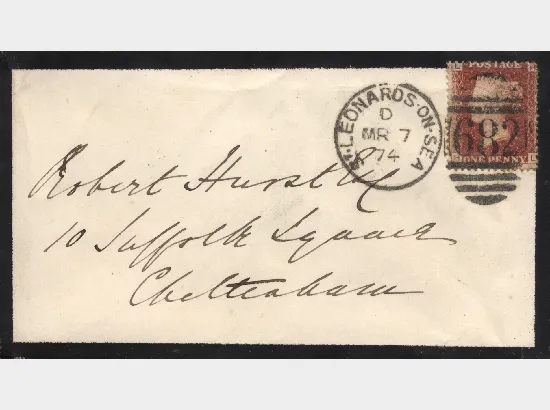 L POSTAGE
ST LEONARDS-ON-SEA
D
MR 7
74
682
ONE PENNY L
Robert Hurst
10 Suffolk Square
Cheltenham